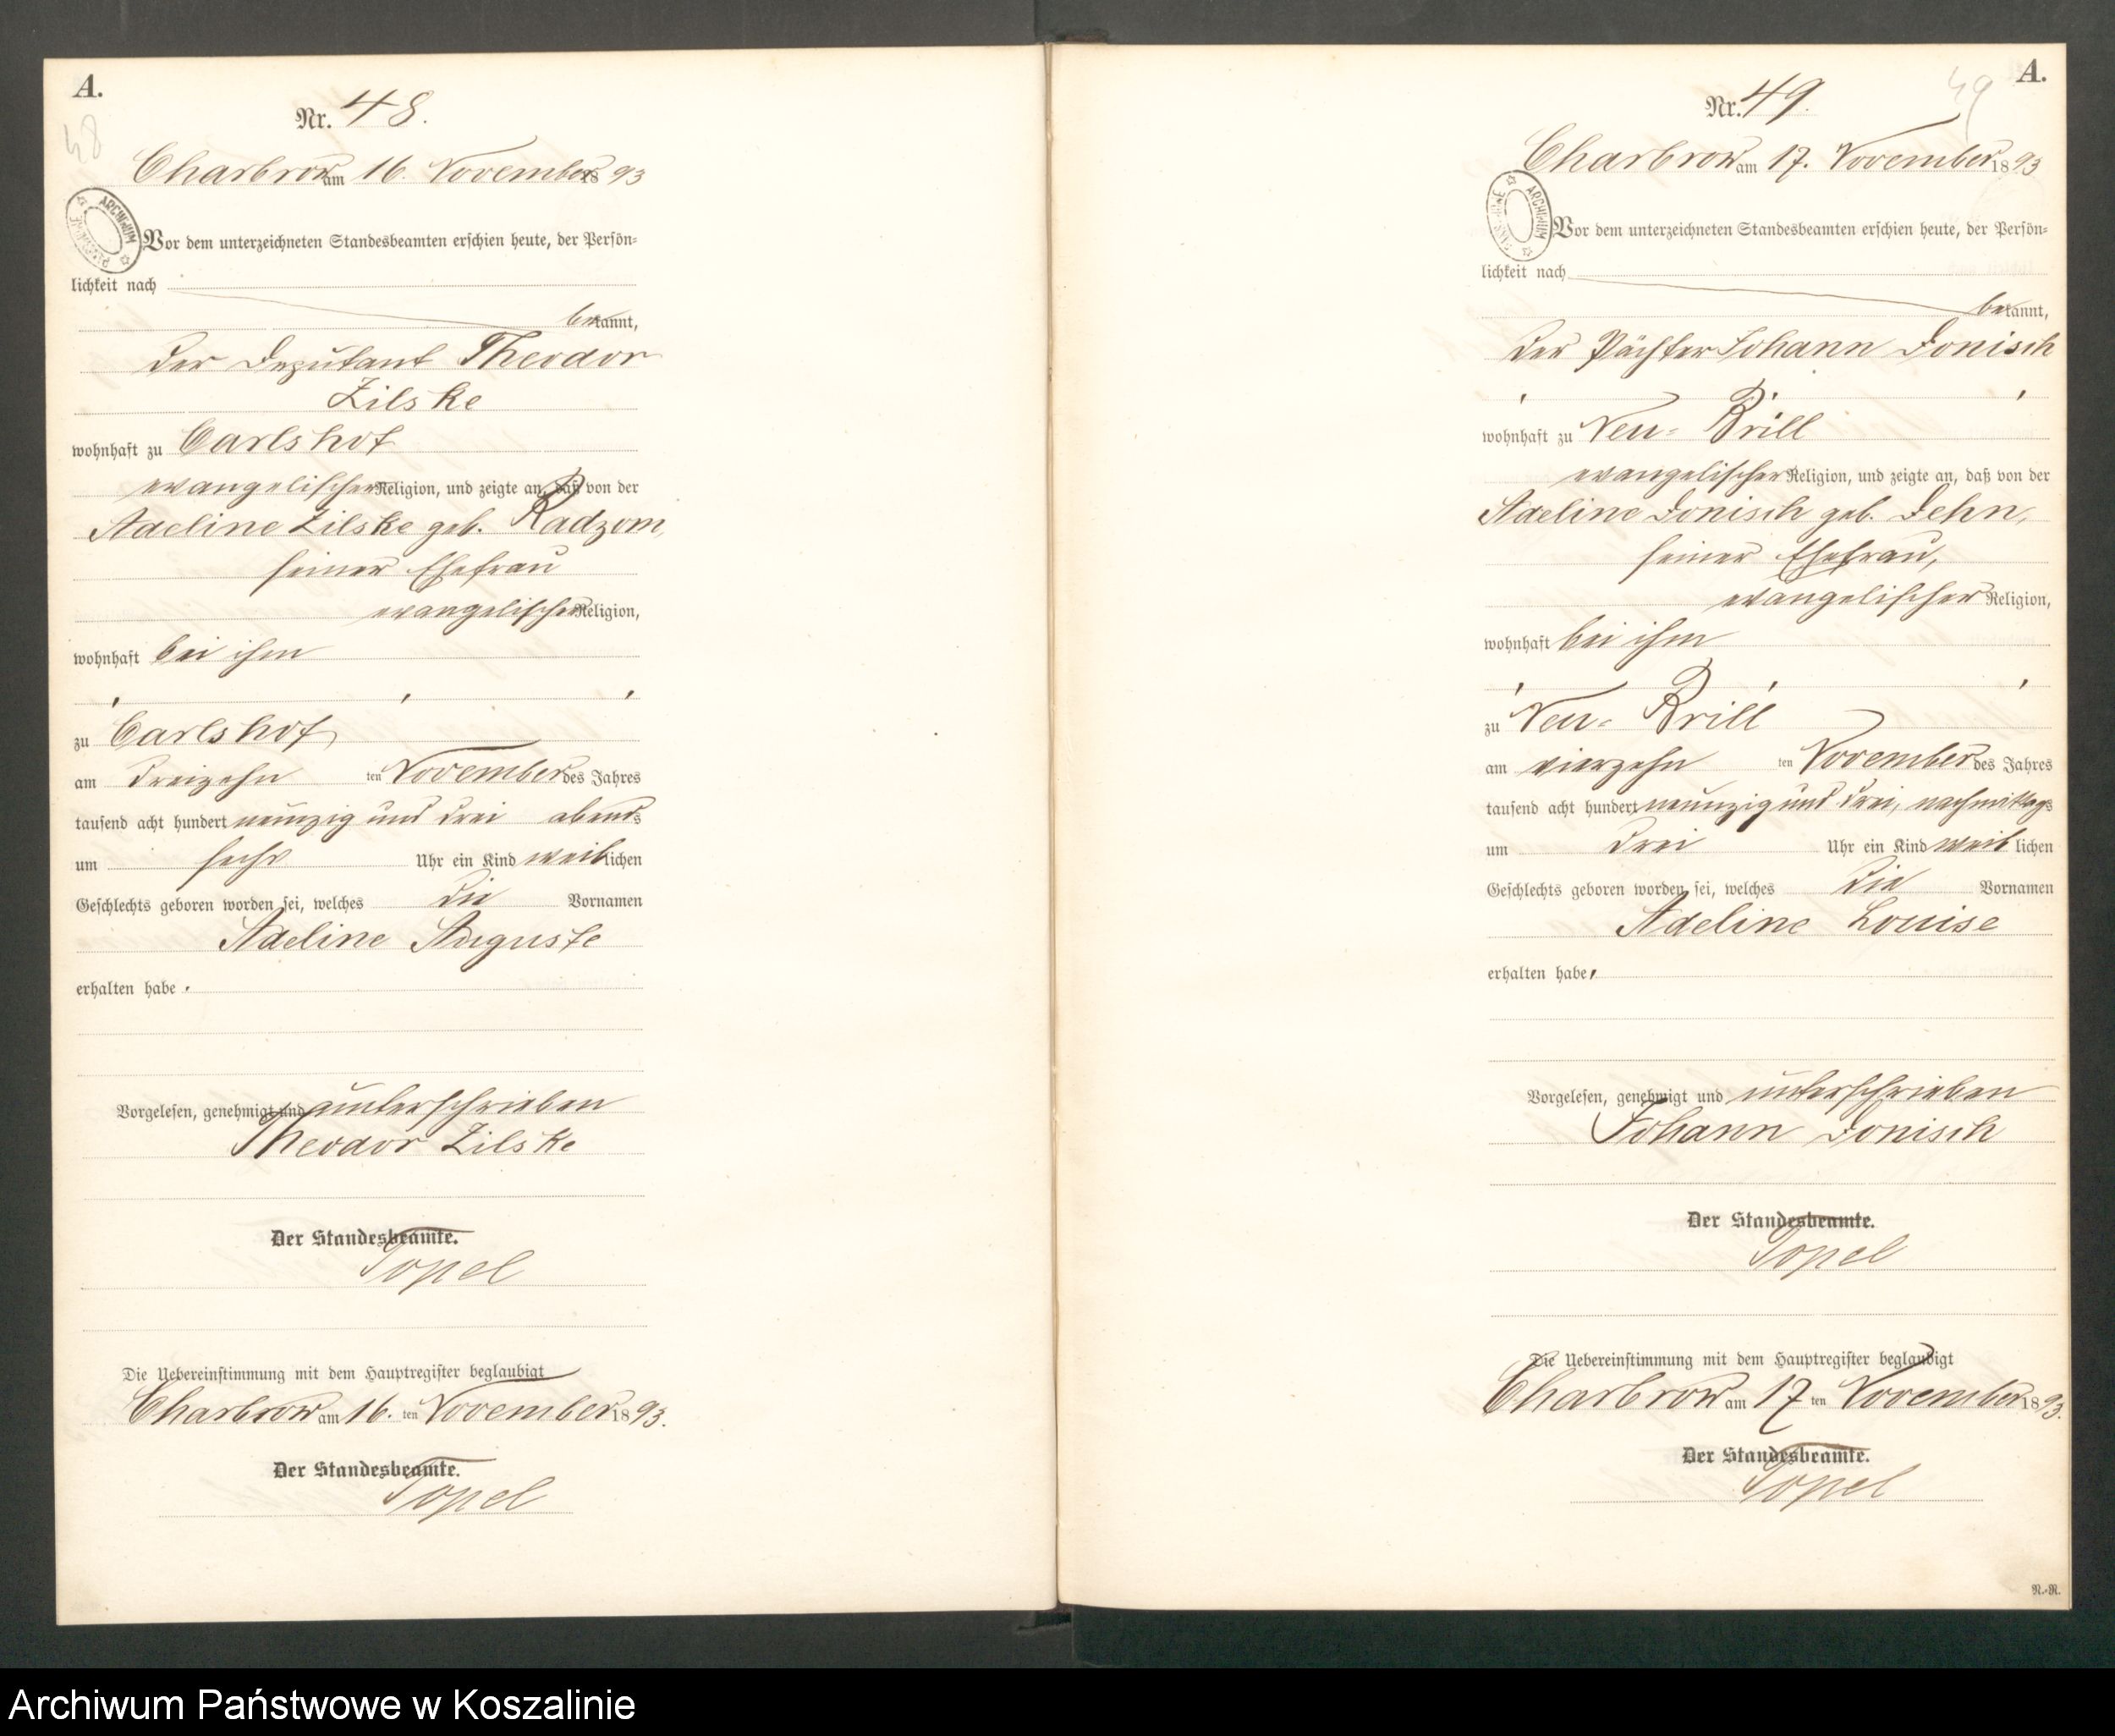 A.
48
Nr. 48.
Charbrow am 16. November 1893
Vor dem unterzeichneten Standesbeamten erschien heute, der Persön-
lichkeit nach
bekannt,
der Deputant Theodor
Zilske
wohnhaft zu Carlshof
evangelischer Religion, und zeigte an, daß von der
Adeline Zilske geb. Radzom,
seiner Ehefrau
evangelischer Religion,
wohnhaft bei ihm
zu Carlshof
am dreizehn ten November des Jahres
tausend acht hundert neunzig und drei abends
um sechs Uhr ein Kind weiblichen
Geschlechts geboren worden sei, welches die Vornamen
Adeline Auguste
erhalten habe.
Vorgelesen, genehmigt und unterschrieben
Theodor Zilske
Der Standesbeamte.
Topel
Die Uebereinstimmung mit dem Hauptregister beglaubigt
Charbrow am 16. ten November 1893.
Der Standesbeamte.
Topel
A.
49
Nr. 49.
Charbrow am 17. November 1893
ARCHIWUM
Vor dem unterzeichneten Standesbeamten erschien heute, der Persön-
lichkeit nach
bekannt,
der Pächter Johann Donisch
wohnhaft zu Neu-Brill
evangelischer Religion, und zeigte an, daß von der
Adeline Donisch geb. Dehn,
seiner Ehefrau,
evangelischer Religion,
wohnhaft bei ihm
zu Neu-Brill
am vierzehn ten November des Jahres
tausend acht hundert neunzig und drei, nachmittags
um drei Uhr ein Kind weiblichen
Geschlechts geboren worden sei, welches die Vornamen
Adeline Louise
erhalten habe.
Vorgelesen, genehmigt und unterschrieben
Johann Donisch
Der Standesbeamte.
Topel
Die Uebereinstimmung mit dem Hauptregister beglaubigt
Charbrow am 17 ten November 1893.
Der Standesbeamte.
Topel
R.-R.
Archiwum Państwowe w Koszalinie